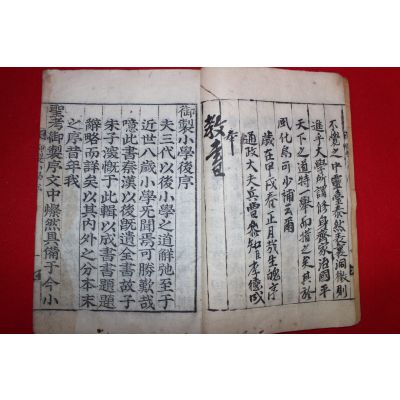 不覺之中靈臺泰然衆義洞徹則
進乎大學所謂修身齊家治國平
天下之道特一擧而措之矣其於
風化烏可少補云爾
歲在甲戌春正月哉生魄序
通政大夫兵曹參知臣李德成
奉
教書
御製小學後序
夫三代以後小學之道解弛至于
近世八歲小學无聞焉可勝歎哉
噫此書秦漢以後旣遺全書故子
朱子深慨于此輯以成書書題題
辭略而詳矣以其內外之分本末
之序昔年我
聖考御製序文中燦然具備于今小